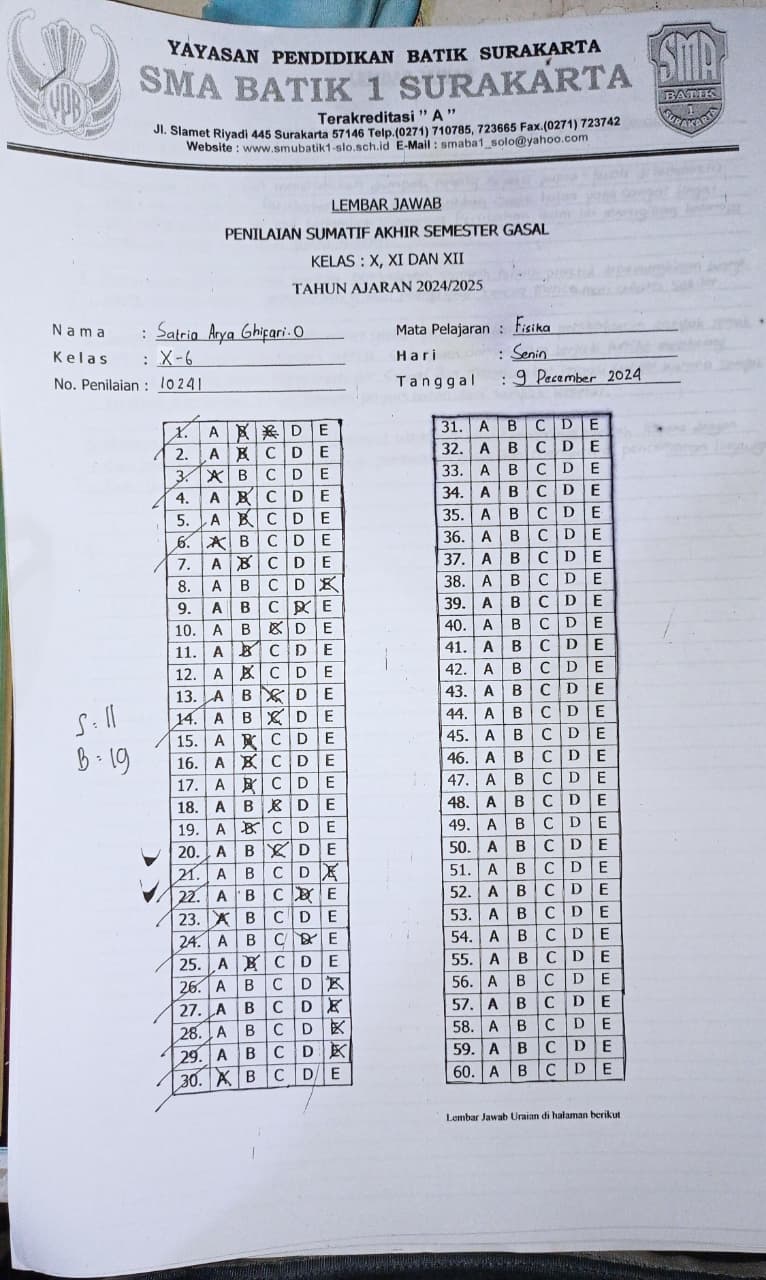 YAYASAN PENDIDIKAN BATIK SURAKARTA
SMA BATIK 1 SURAKARTA
Terakreditasi " A "
Jl. Slamet Riyadi 445 Surakarta 57146 Telp.(0271) 710785, 723665 Fax.(0271) 723742
Website : www.smubatik1-slo.sch.id E-Mail : smaba1_solo@yahoo.com
YPB
SMA
BATIK
1
SURAKARTA
LEMBAR JAWAB
PENILAIAN SUMATIF AKHIR SEMESTER GASAL
KELAS : X, XI DAN XII
TAHUN AJARAN 2024/2025
Nama : Satria Arya Ghifari.O
Kelas : X-6
No. Penilaian : 10241
Mata Pelajaran : Fisika
Hari : Senin
Tanggal : 9 Desember 2024
1. A B C D E
2. A B C D E
3. A B C D E
4. A B C D E
5. A B C D E
6. A B C D E
7. A B C D E
8. A B C D E
9. A B C D E
10. A B C D E
11. A B C D E
12. A B C D E
13. A B C D E
14. A B C D E
15. A B C D E
16. A B C D E
17. A B C D E
18. A B C D E
19. A B C D E
20. A B C D E
21. A B C D E
22. A B C D E
23. A B C D E
24. A B C D E
25. A B C D E
26. A B C D E
27. A B C D E
28. A B C D E
29. A B C D E
30. A B C D E
S : 11
B : 19
31. A B C D E
32. A B C D E
33. A B C D E
34. A B C D E
35. A B C D E
36. A B C D E
37. A B C D E
38. A B C D E
39. A B C D E
40. A B C D E
41. A B C D E
42. A B C D E
43. A B C D E
44. A B C D E
45. A B C D E
46. A B C D E
47. A B C D E
48. A B C D E
49. A B C D E
50. A B C D E
51. A B C D E
52. A B C D E
53. A B C D E
54. A B C D E
55. A B C D E
56. A B C D E
57. A B C D E
58. A B C D E
59. A B C D E
60. A B C D E
Lembar Jawab Uraian di halaman berikut